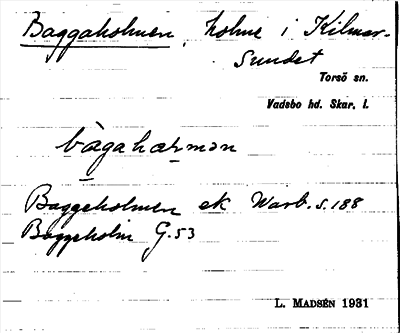 Baggaholmen, holme i Kilmar-
sundet
Torsö sn.
Vadsbo hd. Skar. l.
bàgahæɽmən
Baggeholmen ek Warb. s. 188
Baggeholm G. 53
L. MADSÉN 1931